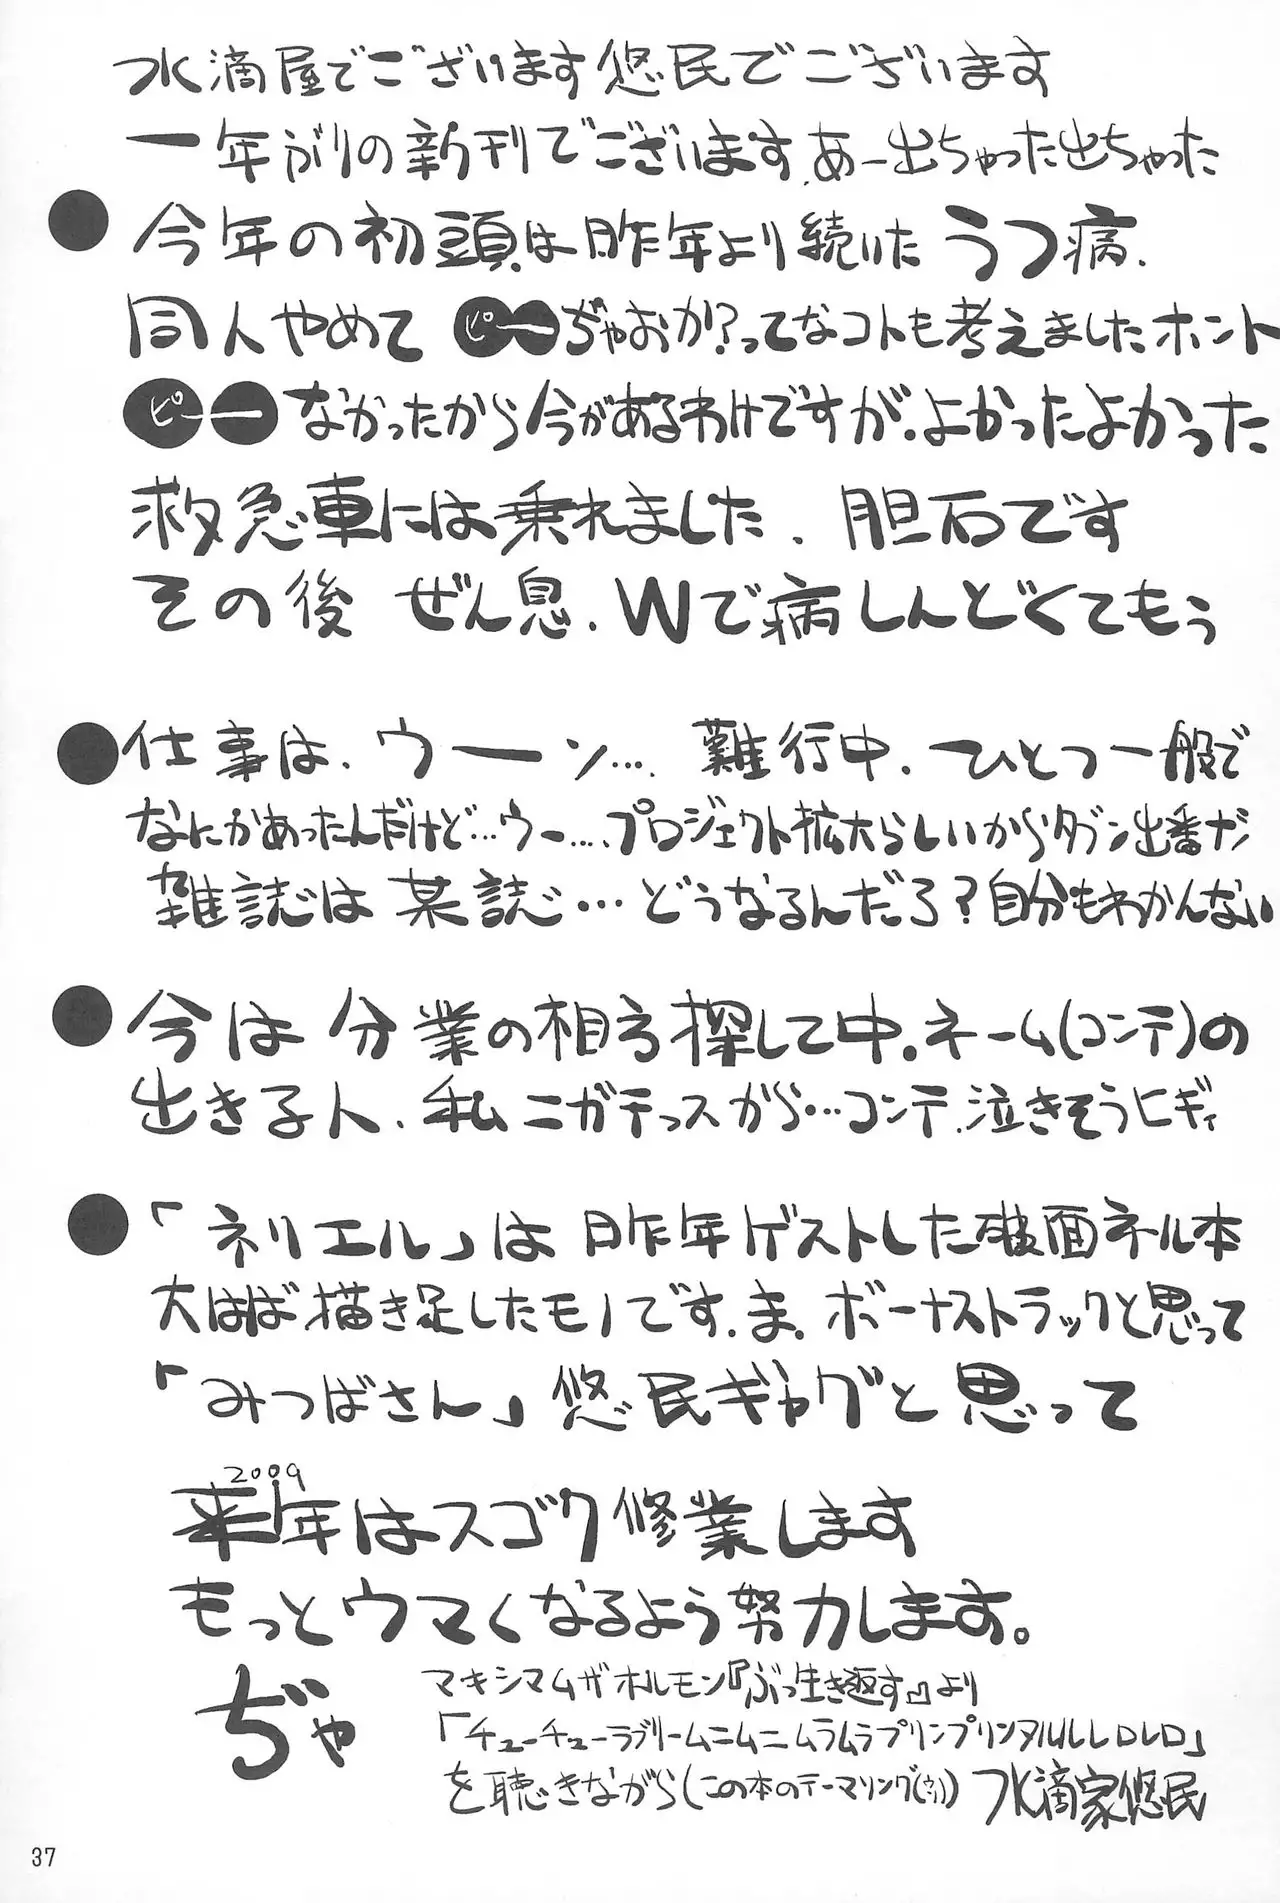 水滴屋でございます悠民でございます
一年ぶりの新刊でございます、あー出ちゃった出ちゃった
● 今年の初頭は昨年より続いたうつ病、
同人やめてピーぢゃおか?ってなコトも考えましたホント
ピーなかったから今があるわけですが、よかったよかった
救急車には乗れました、胆石です
その後 ぜん息、Wで病しんどくてもう
● 仕事は、ウーン…、難行中、ひとつ一般で
なにかあったんだけど…ウー…、プロジェクト拡大らしいからタブン出番ナシ
雑誌は某誌…どうなるんだろ?自分もわかんない
● 今は分業の相方探して中。ネーム(コンテ)の
出きる人、私ニガテっスから…コンテ、泣きそうヒギィ
● 「ネリエル」は昨年ゲストした破面ネル本
大はば描き足したモノです、ま、ボーナストラックと思って
「みつばさん」悠民ギャグと思って
2009
来年はスゴク修業します
もっとウマくなるよう努力します。
ぢゃ
マキシマムザホルモン『ぶっ生き返す』より
「チューチューラブリームニムニムラムラプリンプリンヌルルレロレロ」
を聴きながら(この本のテーマソング(ウソ))
水滴家悠民
37